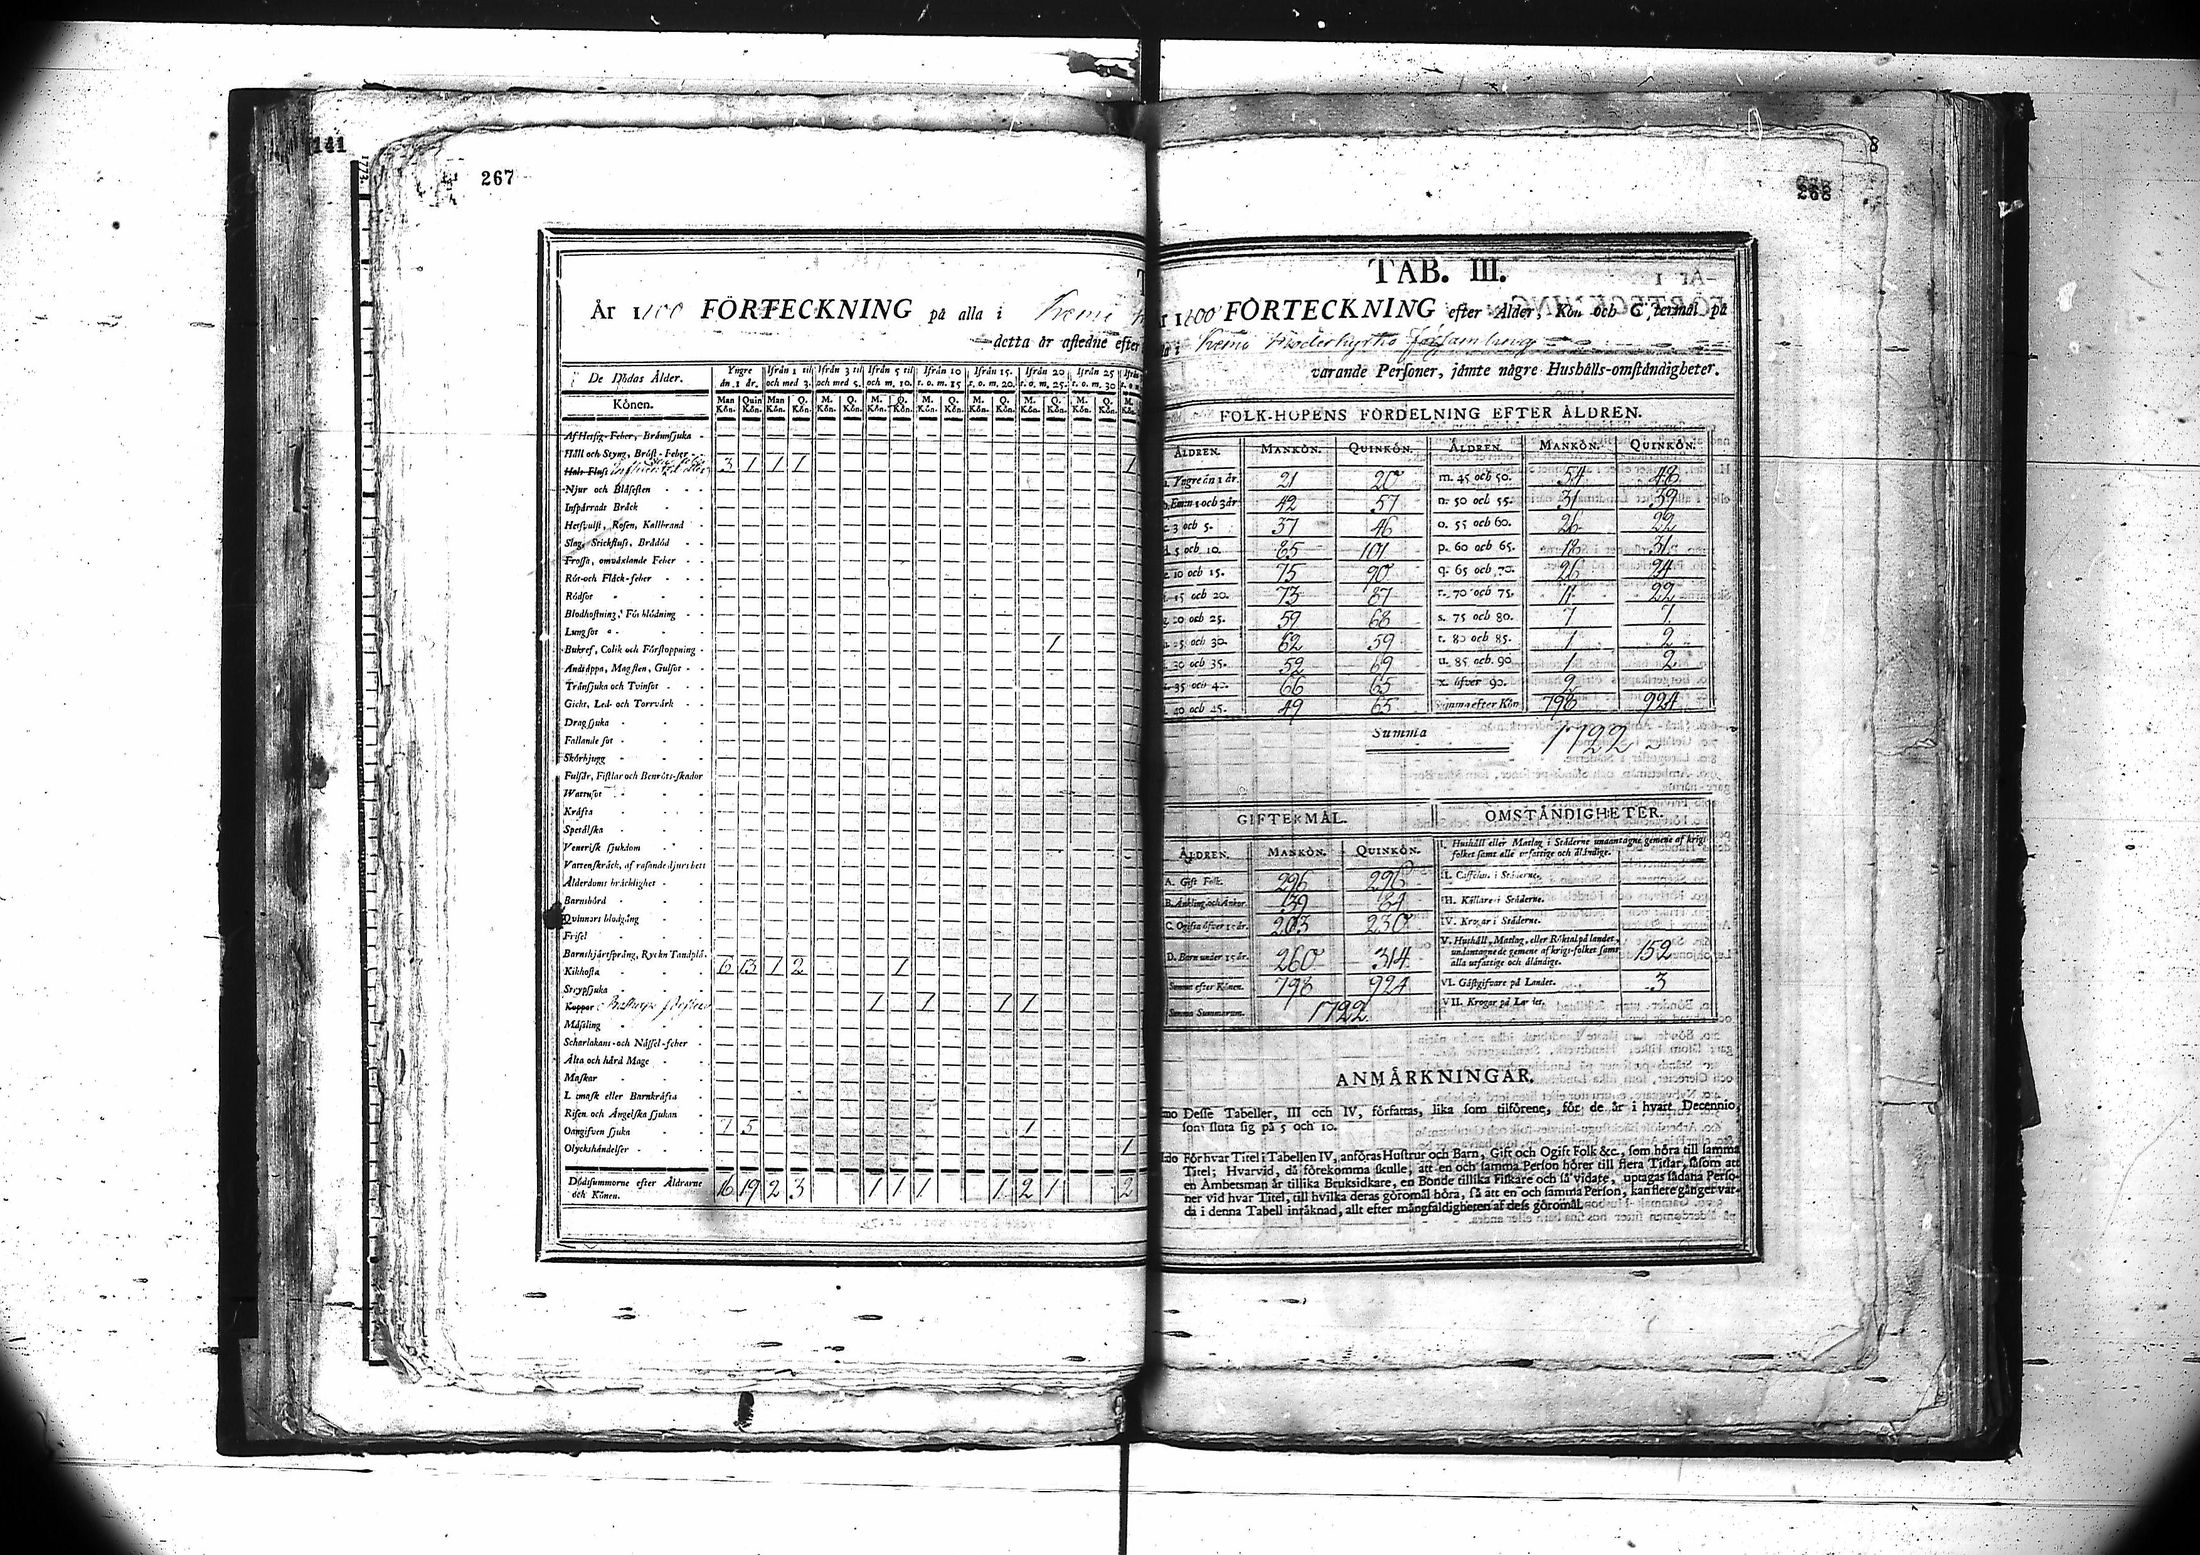 141
267
268
År 1800 FÖRTECKNING på alla i Kemi
detta år afledne efter
De Dödas Ålder.
Yngre än 1 år. Ifrån 1 til och med 3. Ifrån 3 til och med 5. Ifrån 5 til och m. 10. Ifrån 10 t. o. m. 15 Ifrån 15. t. o. m. 20. Ifrån 20 t. o. m. 25. Ifrån 25 t. o. m. 30
Könen.
Man Kön. Quin Kön. Man Kön. Q. Kön. M. Kön. Q. Kön. M. Kön. Q. Kön. M. Kön. Q. Kön. M. Kön. Q. Kön. M. Kön. Q. Kön. M. Kön. Q. Kön. M. Kön.
Af Hetsig-Feber, Brännsjuka
Håll och Styng, Bröst-Feber
Hals-Fluss 3 1 1 1 1
Njur och Blåsesten
Inspärradt Bråck
Hetsvulst, Rosen, Kallbrand
Slag, Stickfluss, Brådöd
Frossa, omväxlande Feber
Röt-och Fläck-feber
Rödsot
Blodhostning, Förblödning
Lungsot
Bukref, Colik och Förstoppning 1
Andtäppa, Magsten, Gulsot
Tränsjuka och Tvinsot
Gicht, Led- och Torrvärk
Dragsjuka
Fallande sot
Skörbjugg
Fulsår, Fistlar och Benröts-skador
Wattusot
Kräfta
Spetälska
Venerisk sjukdom
Vattenskräck, af rasande djurs bett
Ålderdoms bräcklighet
Barnsbörd
Qvinnors blodgång
Frisel
Barnshjärtsprång, Ryck n Tandplå.
Kikhosta 6 13 1 2 1
Strypsjuka
Koppor 1 1 1 1
Mässling
Scharlakans-och Nässel-feber
Älta och hård Mage
Maskar
Risen och Ängelska sjukan
Oangifven sjuka 7 5 1
Olyckshändelser 1
Dödssummorne efter Åldrarne och Könen. 16 19 2 3 1 1 1 1 2 1 2
TAB. III.
1800 FÖRTECKNING efter Ålder, Kön och Giftermål på
Kemi Moderkyrko församling
varande Personer, jämte några Hushålls-omständigheter.
FOLK-HOPENS FÖRDELNING EFTER ÅLDREN.
ÅLDREN. MANKÖN. QUINKÖN. ÅLDREN. MANKÖN. QUINKÖN.
a. Yngre än 1 år. 21 20 m. 45 och 50. 54 48
b. Emn 1 och 3 år 42 57 n. 50 och 55. 31 39
c. 3 och 5. 37 46 o. 55 och 60. 26 22
d. 5 och 10. 85 101 p. 60 och 65. 18 31
e. 10 och 15. 75 90 q. 65 och 70. 26 24
f. 15 och 20. 73 87 r. 70 och 75. 11 22
g. 20 och 25. 59 68 s. 75 och 80. 7 7
h. 25 och 30. 62 59 t. 80 och 85. 1 2
i. 30 och 35. 52 69 u. 85 och 90 1 2
k. 35 och 40. 66 65 x. öfver 90. 2
l. 40 och 45. 49 65 Summa efter Kön 798 924
Summa 1722
GIFTERMÅL. OMSTÄNDIGHETER.
ÅLDREN. MANKÖN. QUINKÖN.
I. Hushåll eller Matlag i Städerne undantagne gemene af krigs
folket samt alle utfattige och åländige.
A. Gift Folk. 296 296 II. Caffehus. i Städerne.
B. Änkling och Änkor. 39 84 III. Källare i Städerne.
C. Ogifta öfver 15 år. 203 230 IV. Krogar i Städerne.
D. Barn under 15 år. 260 314
V. Hushåll, Matlag, eller Röktal på landet,
undantagne de gemene af krigs-folket samt
alla utfattige och åländige. 152
Summa efter Könen. 798 924 VI. Gästgifvare på Landet. 3
Summa Summarum. 1722 VII. Krogar på Landet.
ANMÄRKNINGAR.
1mo Desse Tabeller, III och IV, författas, lika som tilförene, för de år i hvart Decennio,
som sluta sig på 5 och 10.
2do För hvar Titel i Tabellen IV, anföras Hustrur och Barn, Gift och Ogift Folk &c., som höra till samma
Titel; Hvarvid, då förekomma skulle, att en och samma Person hörer till flera Titlar, såsom att
en Ämbetsman är tillika Bruksidkare, en Bonde tillika Fiskare och så vidare, uptagas sådana Perso-
ner vid hvar Titel, till hvilka deras göromål höra, så att en och samma Person, kan flere gånger var-
da i denna Tabell inräknad, allt efter mångfaldigheten af dess göromål.